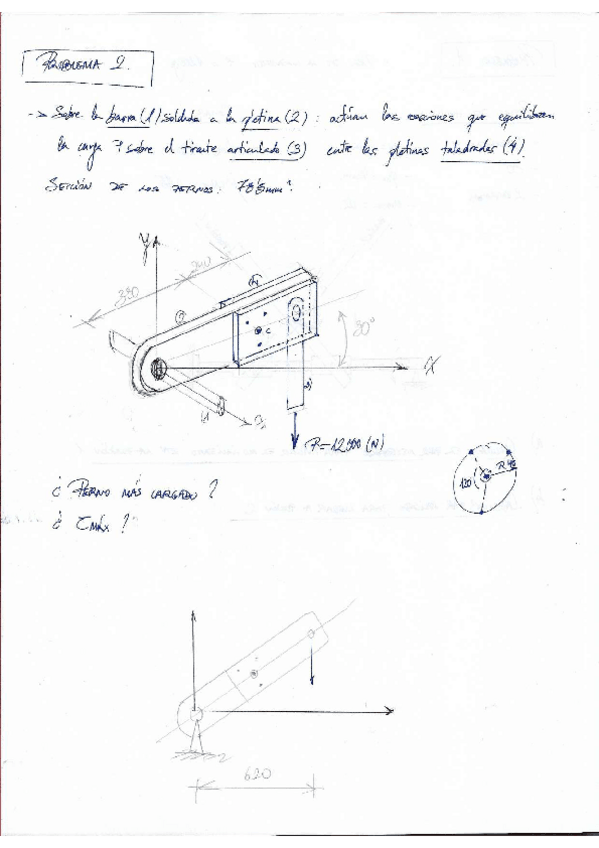 PROBLEMA 2.
-> Sobre la barra (1) soldada a la pletina (2) : actúan las reacciones que equilibran
la carga P sobre el tirante articulado (3) entre las pletinas taladradas (4).
SECCIÓN DE LOS PERNOS: 78'5mm².
Y
240
330
C
30°
X
P=12000 (N)
120
¿ PERNO MÁS CARGADO ?
¿ τMÁX ?
620